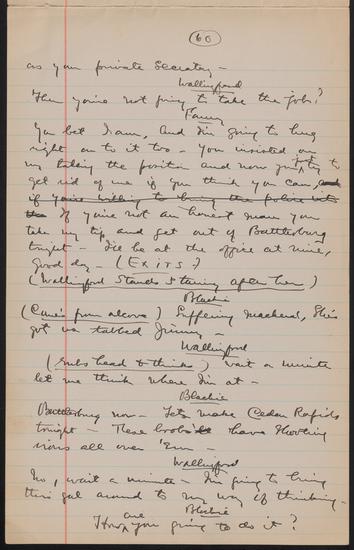 60
as your private Secretary –
Wallingford
Then you're not going to take the job?
Fanny
You bet I am, and I'm going to hang
right on to it too – You insisted on
my taking the position and now just try to
get rid of me if you think you can, and
if you're willing to bring the police into
the If you're not an honest man you
take my tip and get out of Battlesburg
tonight – I'll be at the office at nine,
Good day – (EXITS)
(Wallingford stands staring after her)
Blackie
(Comes from alcove) Suffering mackerel, She's
got us tabbed Jimmy –
Wallingford
(Rubs head & thinks) Wait a minute
let me think where I'm at –
Blackie
Battlesburg now – Let's make Cedar Rapids
tonight – These boobs'll have shooting
irons all over 'em –
Wallingford
No, wait a minute – I'm going to bring
this gal around to my way of thinking –
Blackie
How are you going to do it?